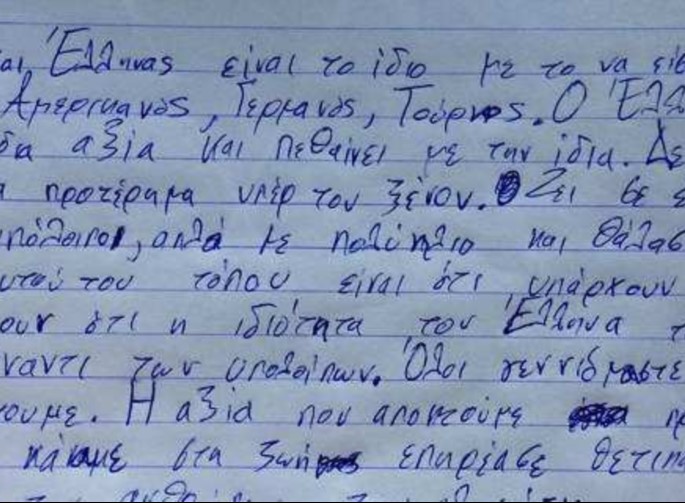 αι Έλληνας είναι το ίδιο με το να είσ
Αμερικανός, Γερμανός, Τούρκος. Ο Έλλ
δια αξία και πεθαίνει με την ίδια. Δε
προτέρημα υπέρ του ξένου. Ζει σε
υπόλοιποι, απλά με πολύ ήλιο και θάλασ
υτού του τόπου είναι ότι υπάρχουν
ουν ότι η ιδιότητα του Έλληνα τ
ναντι των υπολοίπων. Όλοι γεννιόμαστε
ουμε. Η αξία που αποκτούμε πρ
κάναμε στη ζωή επηρέασε θετικ